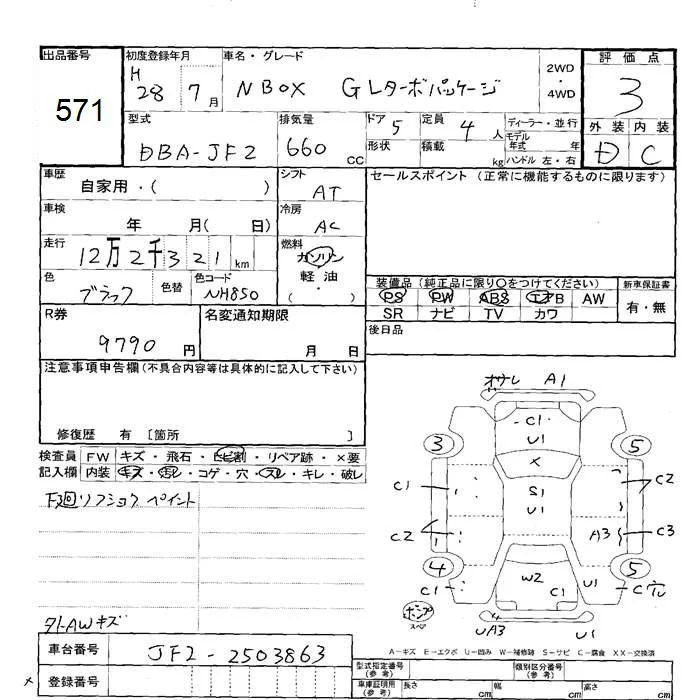 出品番号
571
初度登録年月
H 28 7月
車名・グレード
N BOX GLターボパッケージ
2WD
・
4WD
評価点
3
外装 内装
D C
型式
DBA-JF2
排気量
660 CC
ドア 5
形状
定員 4人
積載 kg
ディーラー・並行
モデル年式 年
ハンドル 左・右
車歴
自家用・( )
シフト
AT
車検
年 月( 日)
冷房
AC
走行
12万2千321km
燃料
ガソリン
軽油
( ・ )
色
ブラック
色替
色コード
NH850
セールスポイント (正常に機能するものに限ります)
装備品(純正品に限り○をつけてください)
新車保証書
PS PW ABS エアB AW
SR ナビ TV カワ
有・無
R券
9790円
名変通知期限
月 日
後日品
注意事項申告欄(不具合内容等は具体的に記入して下さい)
修復歴 有 〔箇所 〕
検査員 FW キズ・飛石・ヒビ割・リペア跡・×要
記入欄 内装 キズ・汚レ・コゲ・穴・スレ・キレ・破レ
下廻リフショク ペイント
A1
C1
U1
3
5
X
C1
S1
U1
C2
C2
A3
C3
4
5
C1
W2
C1
U1
スペア
UA3
U1
A-キズ E-エクボ U-凹み W-補修跡 S-サビ C-腐食 XX-交換済
タイトAWキズ
車台番号
JF2-2503863
登録番号
x
型式指定番号(参考)
類別区分番号(参考)
車庫証明用(参考)
長さ cm
幅 cm
高さ cm